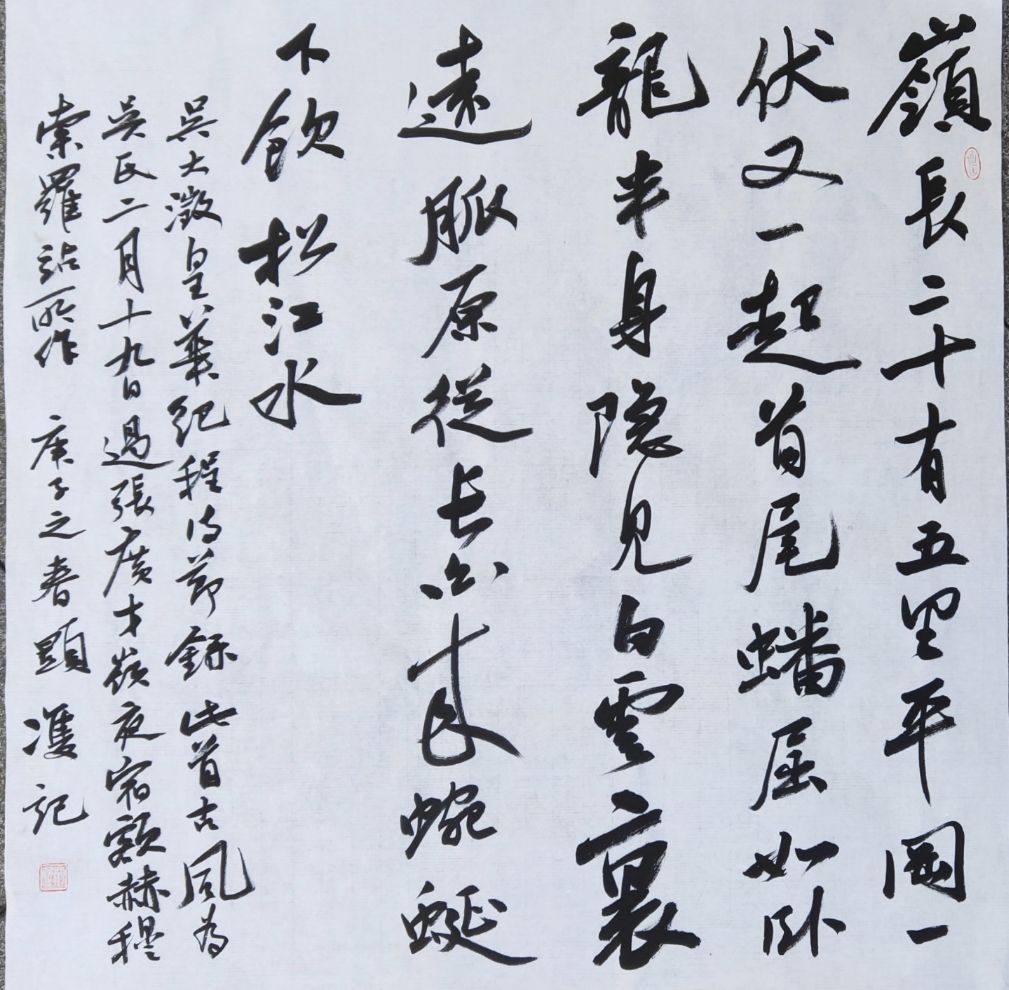 嶺長二十有五里平岡一
伏又一起首尾蟠屈如卧
龍半身隐見白雲裏
遠脈原從长白来蜿蜒
下飲松江水
吳大澂皇華紀程诗節錄此首古風為
吳氏二月十九日過張廣才嶺夜宿額赫穆
索羅站所作 庚子之春顯濩記